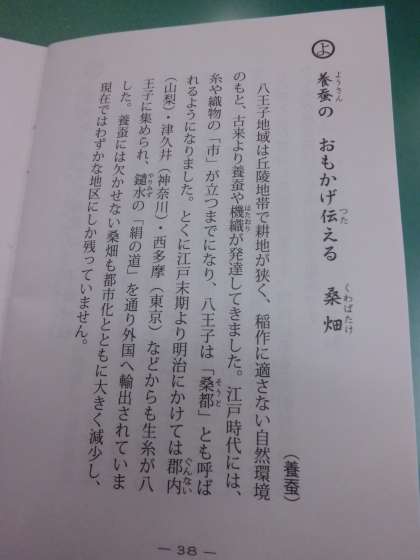 よ 養蚕の おもかげ伝える 桑畑
ようさん つた くわばたけ
(養蚕)
八王子地域は丘陵地帯で耕地が狭く、稲作に適さない自然環境
のもと、古来より養蚕や機織が発達してきました。江戸時代には、
はたおり
糸や織物の「市」が立つまでになり、八王子は「桑都」とも呼ば
そうと
れるようになりました。とくに江戸末期より明治にかけては郡内
ぐんない
(山梨)・津久井(神奈川)・西多摩(東京)などからも生糸が八
王子に集められ、鑓水の「絹の道」を通り外国へ輸出されていま
やりみず
した。養蚕には欠かせない桑畑も都市化とともに大きく減少し、
現在ではわずかな地区にしか残っていません。
— 38 —